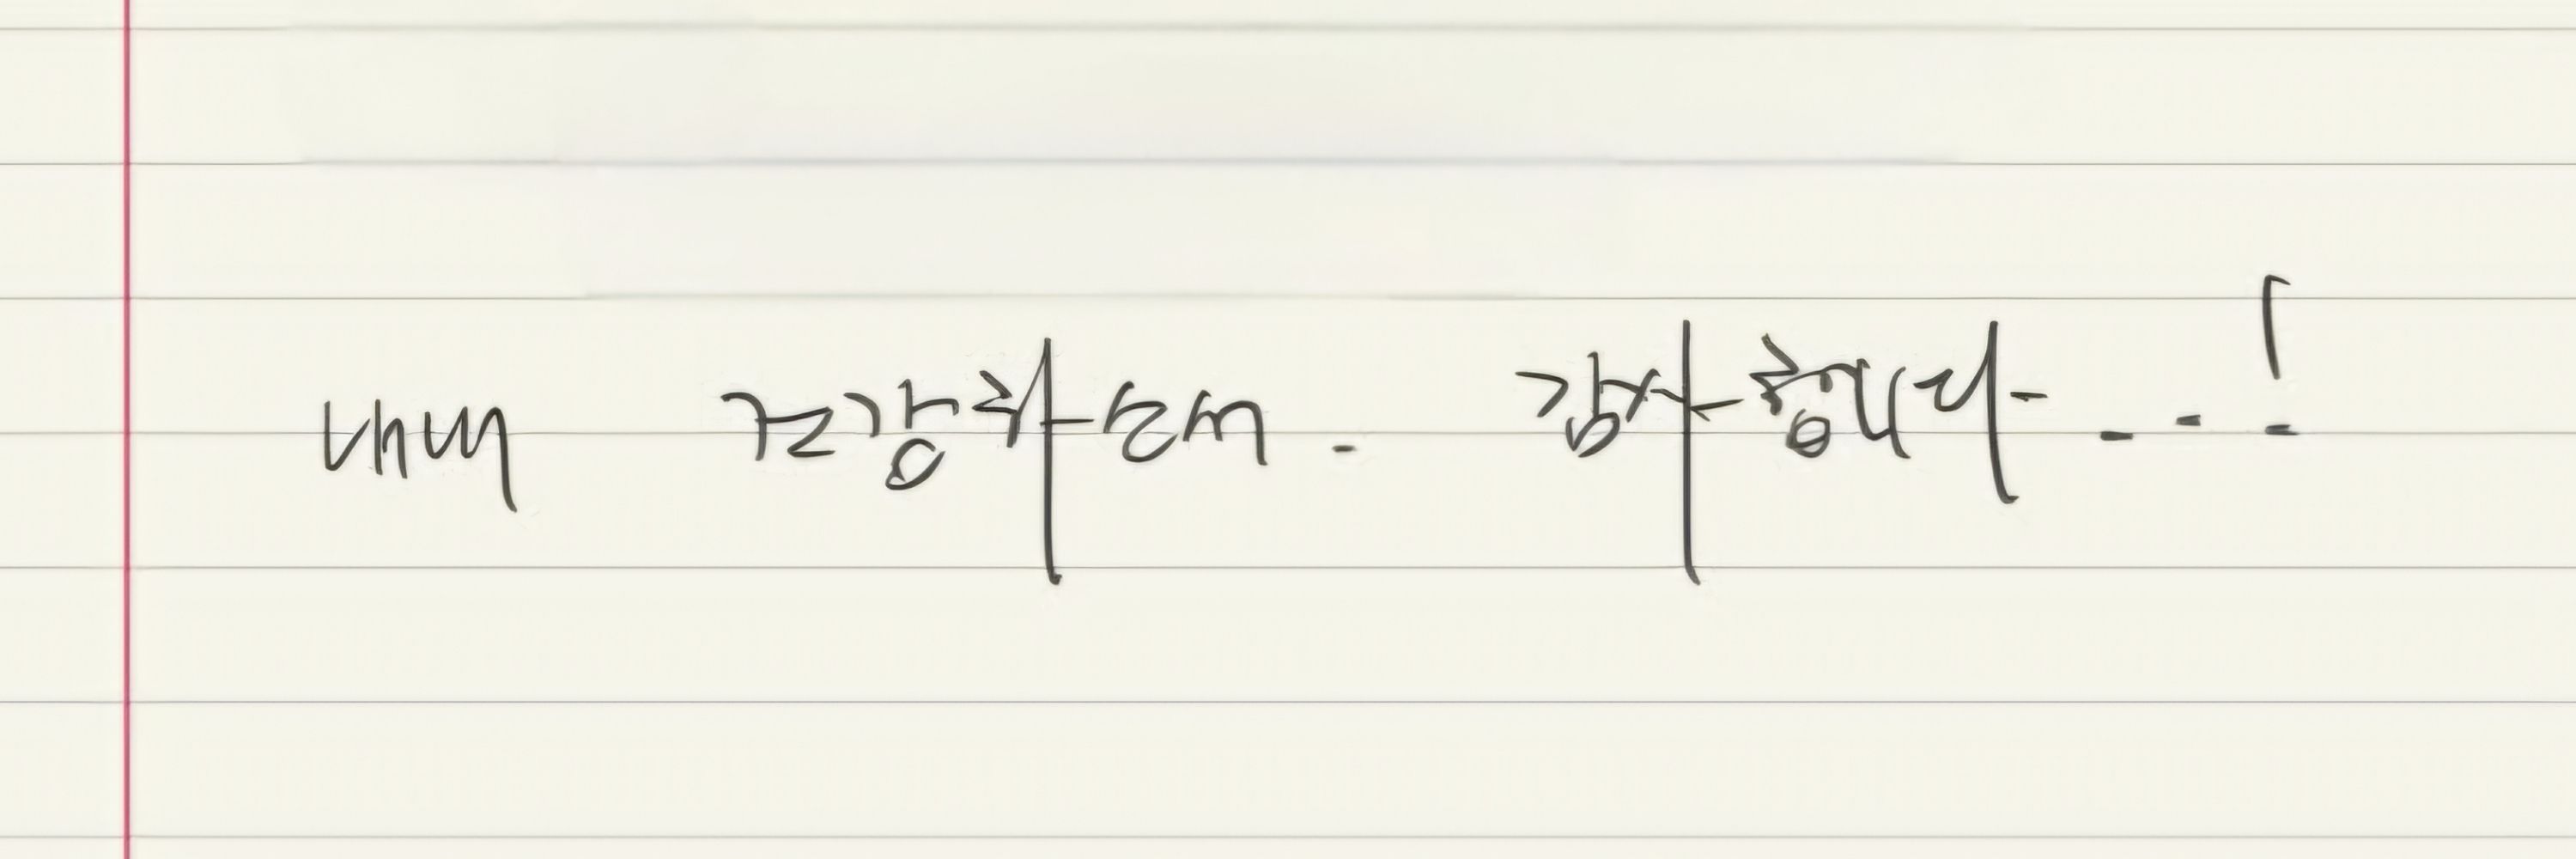 내내 건강하소서. 감사합니다..!